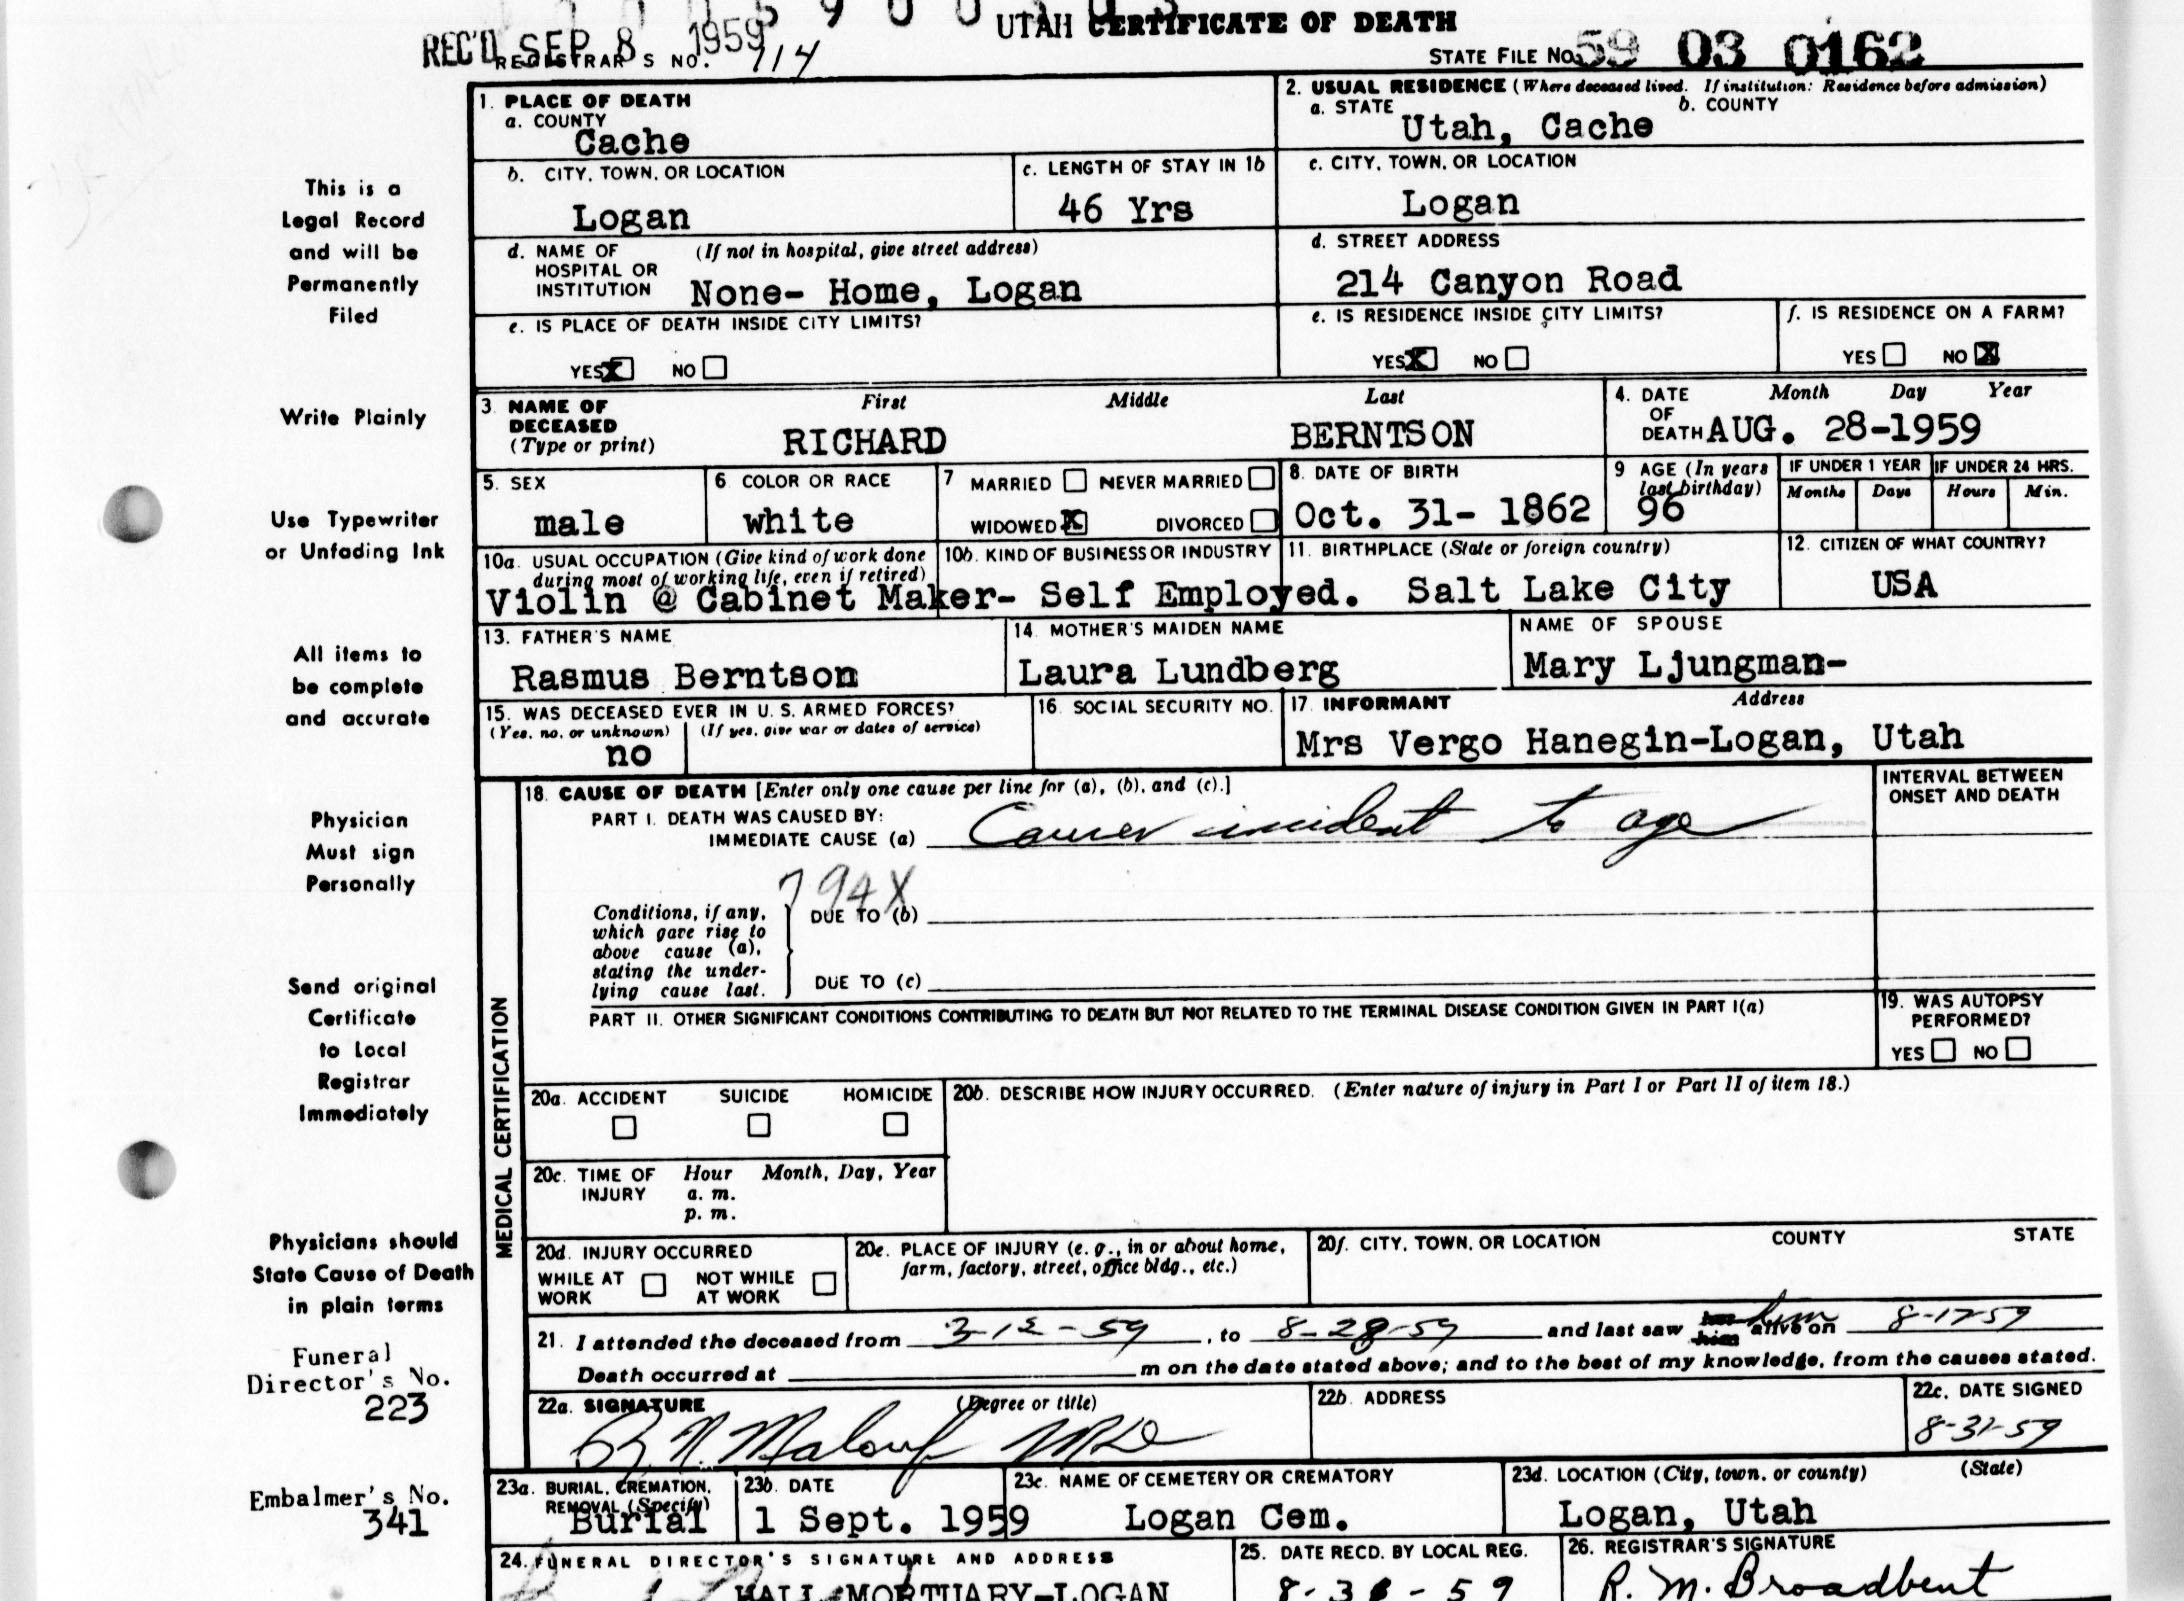 UTAH CERTIFICATE OF DEATH
REC'D SEP 8 1959
REGISTRAR'S NO. 114
STATE FILE NO. 59 03 0162
1. PLACE OF DEATH
a. COUNTY
Cache
2. USUAL RESIDENCE (Where deceased lived. If institution: Residence before admission)
a. STATE b. COUNTY
Utah, Cache
b. CITY, TOWN, OR LOCATION
Logan
c. LENGTH OF STAY IN 1b
46 Yrs
c. CITY, TOWN, OR LOCATION
Logan
d. NAME OF HOSPITAL OR INSTITUTION (If not in hospital, give street address)
None- Home, Logan
d. STREET ADDRESS
214 Canyon Road
e. IS PLACE OF DEATH INSIDE CITY LIMITS?
YES X NO
e. IS RESIDENCE INSIDE CITY LIMITS?
YES X NO
f. IS RESIDENCE ON A FARM?
YES NO X
3. NAME OF DECEASED (Type or print)
First Middle Last
RICHARD BERNTSON
4. DATE OF DEATH Month Day Year
AUG. 28-1959
5. SEX
male
6. COLOR OR RACE
white
7 MARRIED NEVER MARRIED
WIDOWED X DIVORCED
8. DATE OF BIRTH
Oct. 31- 1862
9 AGE (In years last birthday)
96
IF UNDER 1 YEAR IF UNDER 24 HRS.
Months Days Hours Min.
10a. USUAL OCCUPATION (Give kind of work done during most of working life, even if retired)
10b. KIND OF BUSINESS OR INDUSTRY
Violin @ Cabinet Maker- Self Employed.
11. BIRTHPLACE (State or foreign country)
Salt Lake City
12. CITIZEN OF WHAT COUNTRY?
USA
13. FATHER'S NAME
Rasmus Berntson
14. MOTHER'S MAIDEN NAME
Laura Lundberg
NAME OF SPOUSE
Mary Ljungman-
15. WAS DECEASED EVER IN U. S. ARMED FORCES?
(Yes, no, or unknown) (If yes, give war or dates of service)
no
16. SOCIAL SECURITY NO.
17. INFORMANT Address
Mrs Vergo Hanegin-Logan, Utah
MEDICAL CERTIFICATION
18. CAUSE OF DEATH [Enter only one cause per line for (a), (b), and (c).]
INTERVAL BETWEEN ONSET AND DEATH
PART I. DEATH WAS CAUSED BY:
IMMEDIATE CAUSE (a) Causes incident to age
794X
Conditions, if any, which gave rise to above cause (a), stating the underlying cause last.
DUE TO (b)
DUE TO (c)
PART II. OTHER SIGNIFICANT CONDITIONS CONTRIBUTING TO DEATH BUT NOT RELATED TO THE TERMINAL DISEASE CONDITION GIVEN IN PART I(a)
19. WAS AUTOPSY PERFORMED?
YES NO
20a. ACCIDENT SUICIDE HOMICIDE
20b. DESCRIBE HOW INJURY OCCURRED. (Enter nature of injury in Part I or Part II of item 18.)
20c. TIME OF INJURY Hour Month, Day, Year
a. m.
p. m.
20d. INJURY OCCURRED
WHILE AT WORK NOT WHILE AT WORK
20e. PLACE OF INJURY (e. g., in or about home, farm, factory, street, office bldg., etc.)
20f. CITY, TOWN, OR LOCATION COUNTY STATE
21. I attended the deceased from 3-12-59, to 8-28-59 and last saw him alive on 8-17-59
Death occurred at m on the date stated above; and to the best of my knowledge, from the causes stated.
22a. SIGNATURE (Degree or title)
Malouf MD
22b. ADDRESS
22c. DATE SIGNED
8-31-59
23a. BURIAL, CREMATION, REMOVAL (Specify)
Burial
23b. DATE
1 Sept. 1959
23c. NAME OF CEMETERY OR CREMATORY
Logan Cem.
23d. LOCATION (City, town, or county) (State)
Logan, Utah
24. FUNERAL DIRECTOR'S SIGNATURE AND ADDRESS
HALL MORTUARY-LOGAN
25. DATE RECD. BY LOCAL REG.
26. REGISTRAR'S SIGNATURE
R. M. Broadbent
This is a
Legal Record
and will be
Permanently
Filed
Write Plainly
Use Typewriter
or Unfading Ink
All items to
be complete
and accurate
Physician
Must sign
Personally
Send original
Certificate
to Local
Registrar
Immediately
Physicians should
State Cause of Death
in plain terms
Funeral
Director's No.
223
Embalmer's No.
341